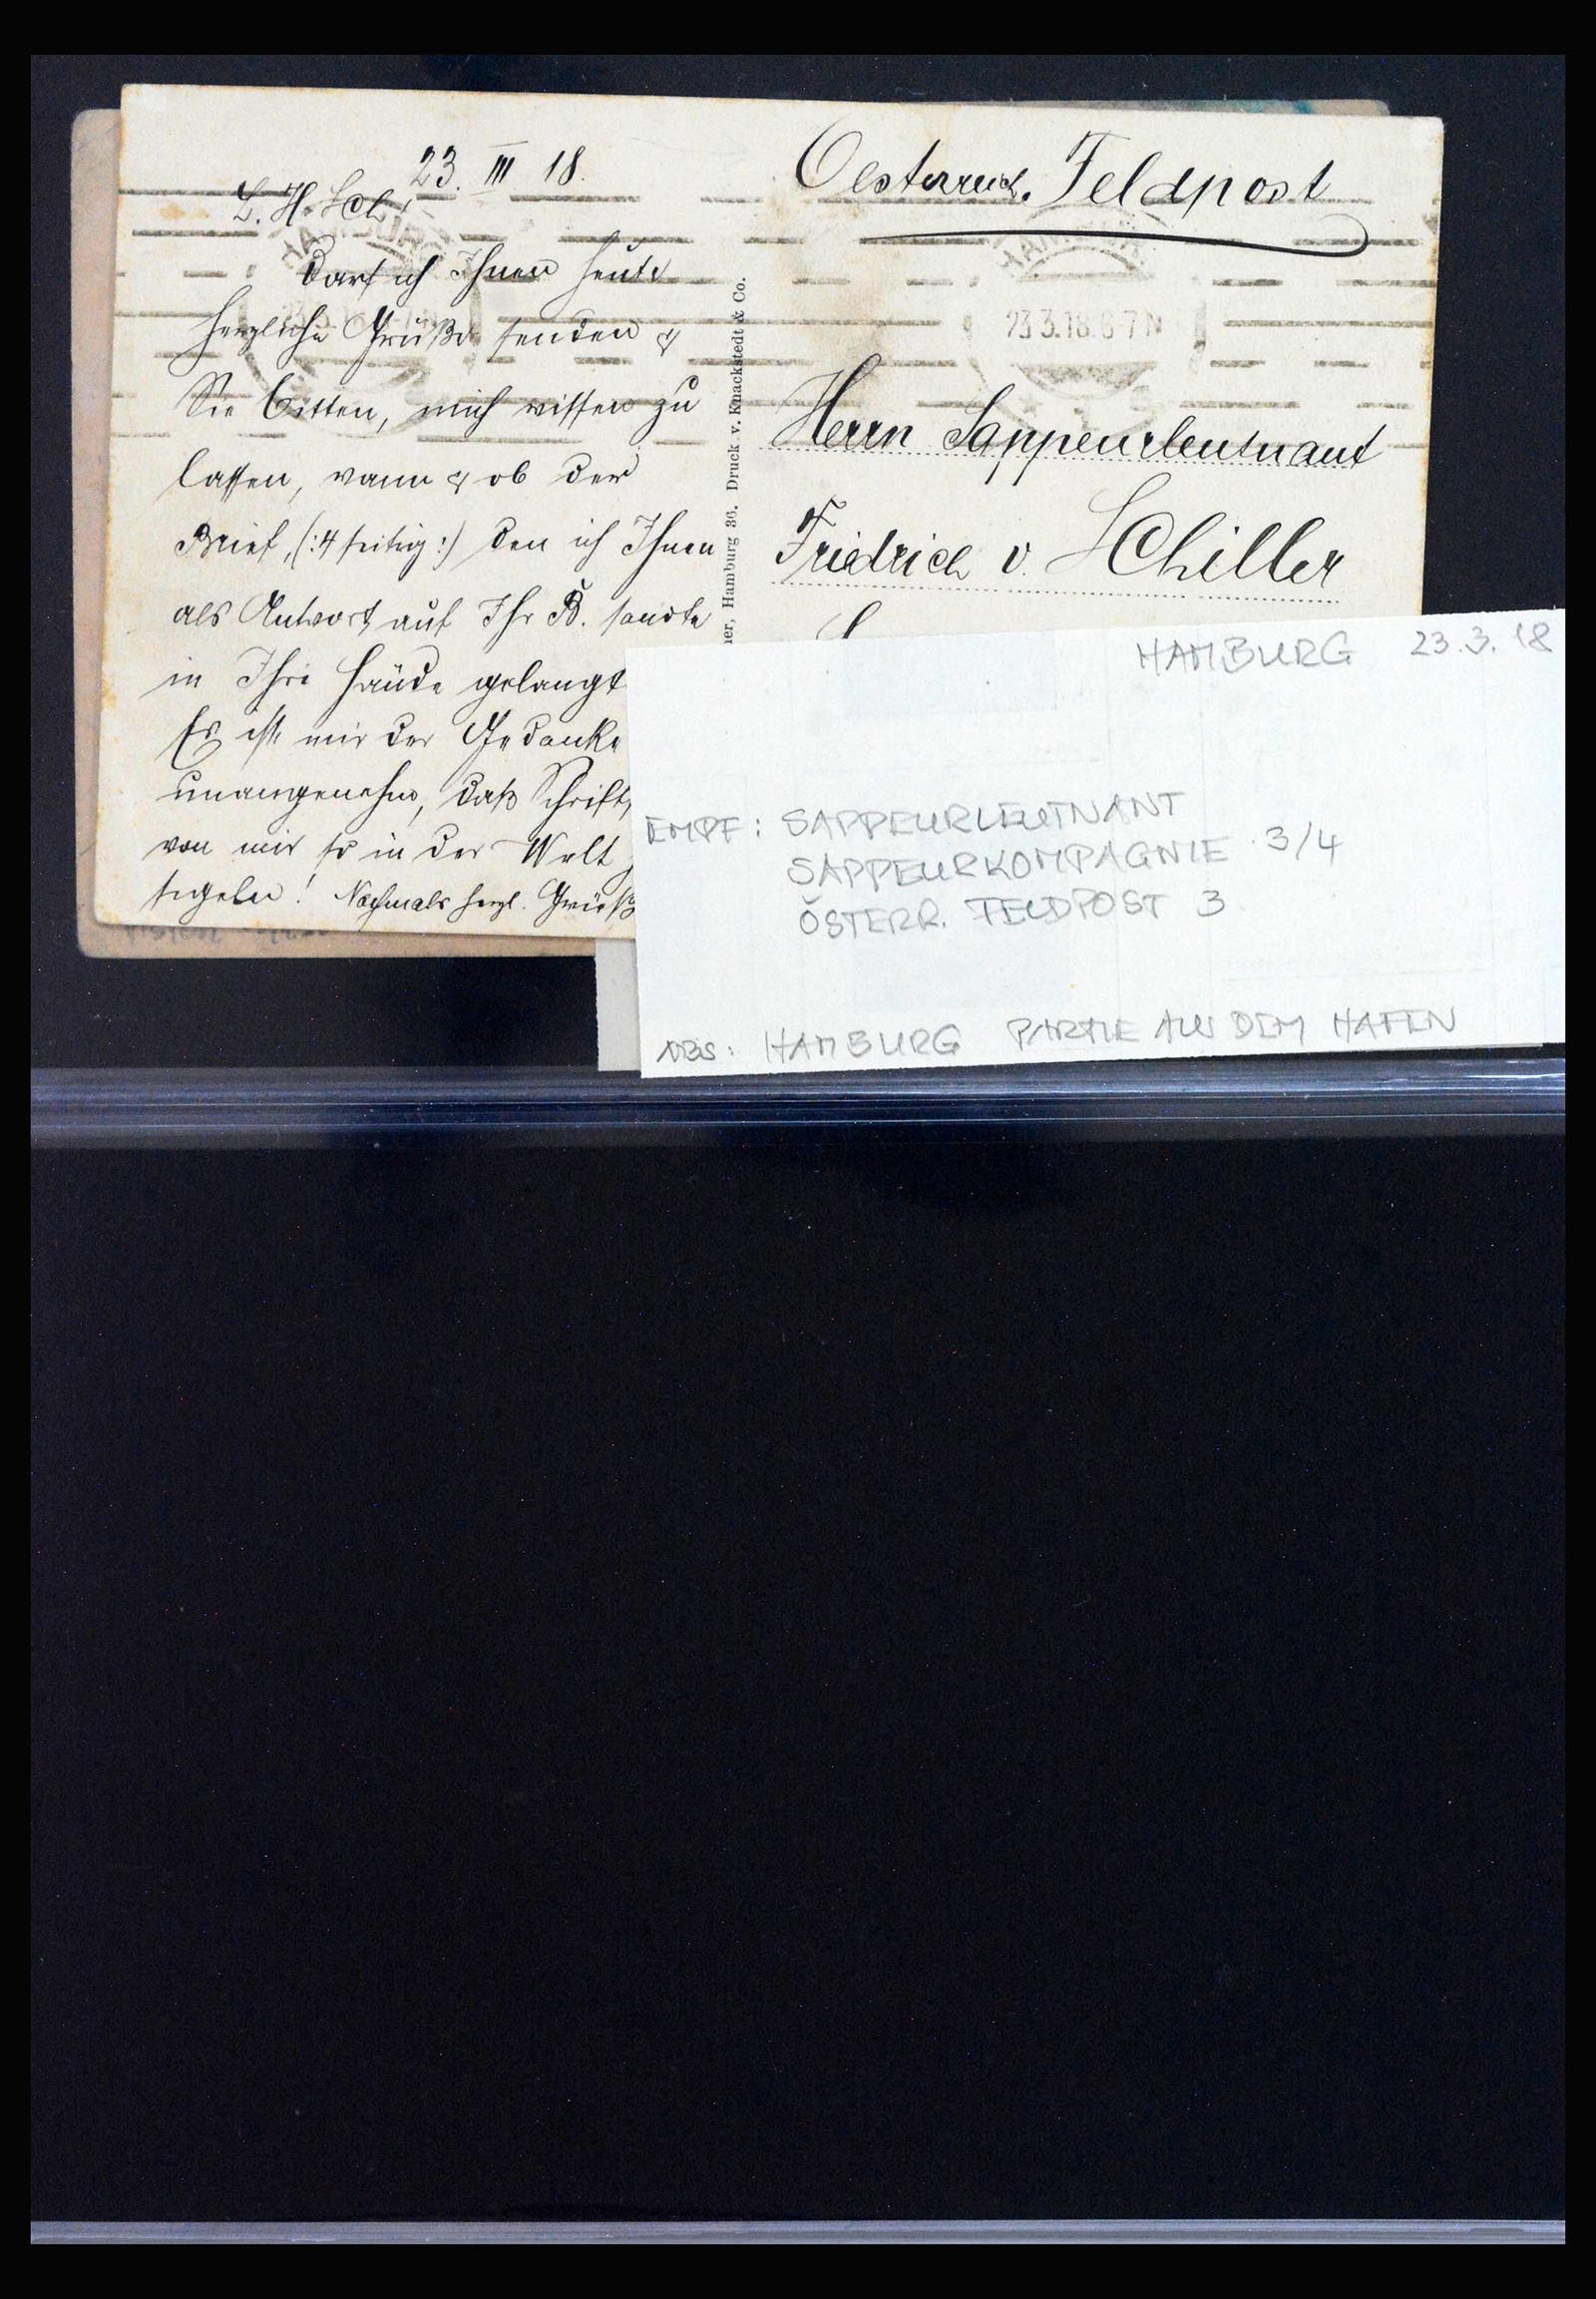 23. III 18.
L. H. Sch!
Darf ich Ihnen heute
herzliche Grüße senden &
Sie bitten, mich wissen zu
lassen, wann & ob der
Brief, (:4 seitig:) den ich Ihnen
als Antwort auf Ihr B. sandte
in Ihre Hände gelangt
Es ist mir der Gedanke
unangenehm, daß Schrift,
von mir so in der Welt
segeln! Nochmals herzl. Grüße
ner, Hamburg 36. Druck v. Knackstedt & Co.
Oesterreich. Feldpost
HAMBURG
23.3.18.6-7N
Herrn Sappeurleutnant
Friedrich v. Schiller
HAMBURG 23.3.18
EMPF: SAPPEURLEUTNANT
SAPPEURKOMPAGNIE 3/4
ÖSTERR. FELDPOST 3
ABS: HAMBURG PARTIE AUS DEM HAFEN